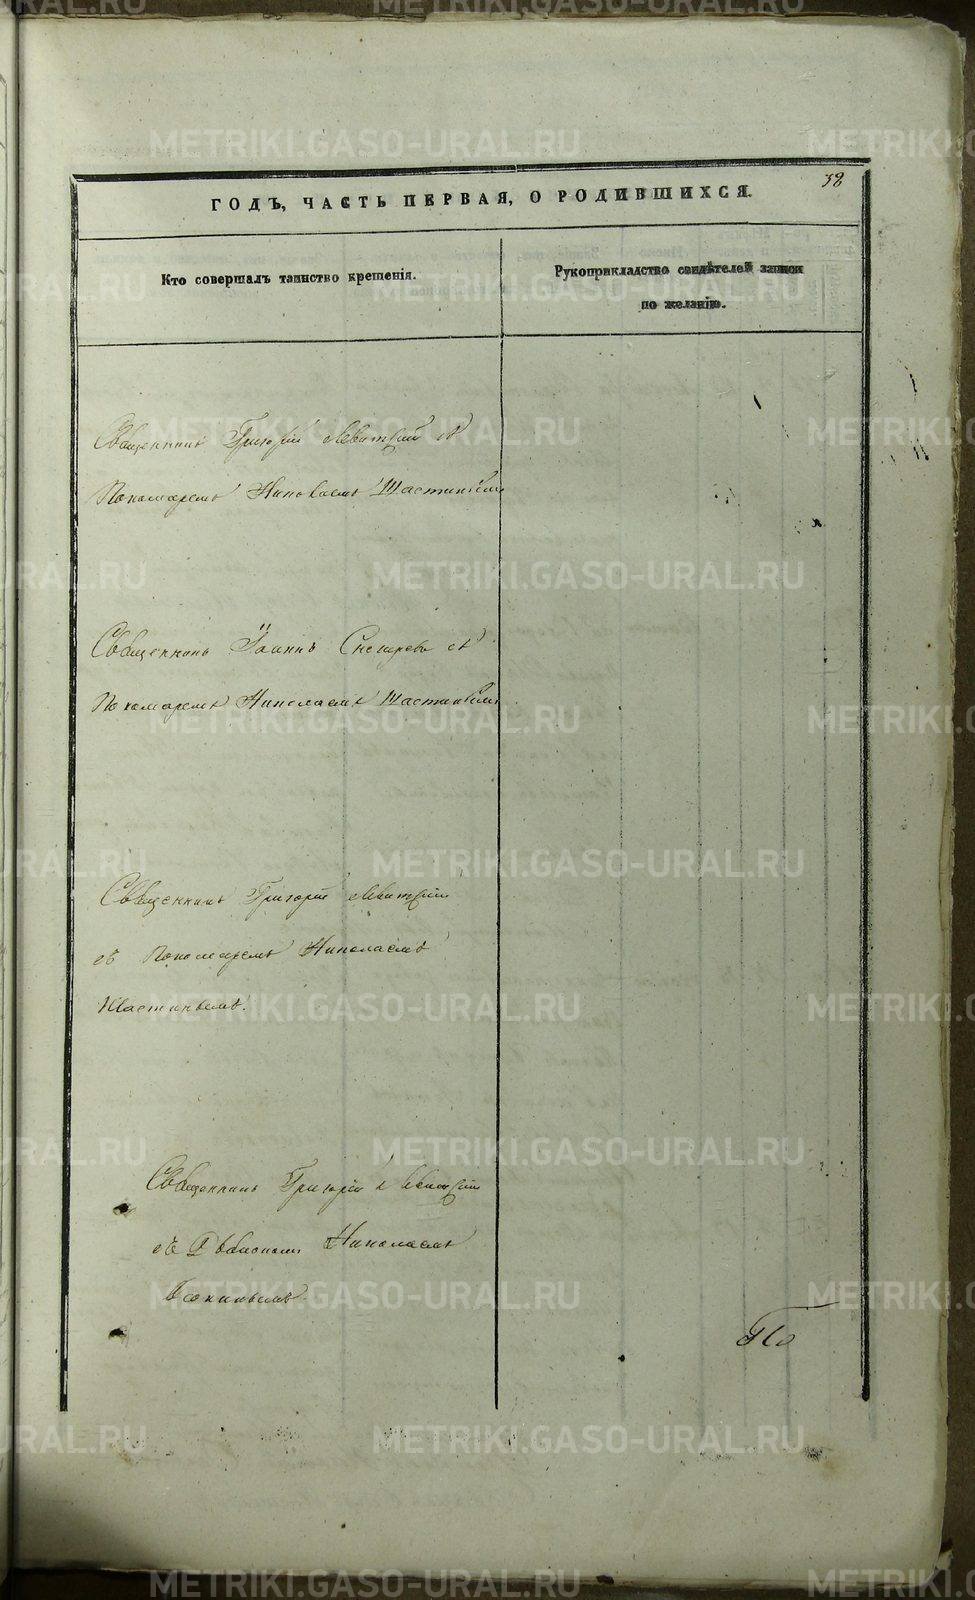 58
ГОДЪ, ЧАСТЬ ПЕРВАЯ, О РОДИВШИХСЯ.
Кто совершалъ таинство крещенія.
Рукоприкладство свидѣтелей записи
по желанію.
Священникъ Григорій Левитскій съ
Пономаремъ Николаемъ
Священникъ Іоаннъ съ
Пономаремъ Николаемъ
Священникъ Григорій Левитскій
съ Пономаремъ Николаемъ
Священникъ Григорій Левитскій
съ Николаемъ
METRIKI.GASO-URAL.RU